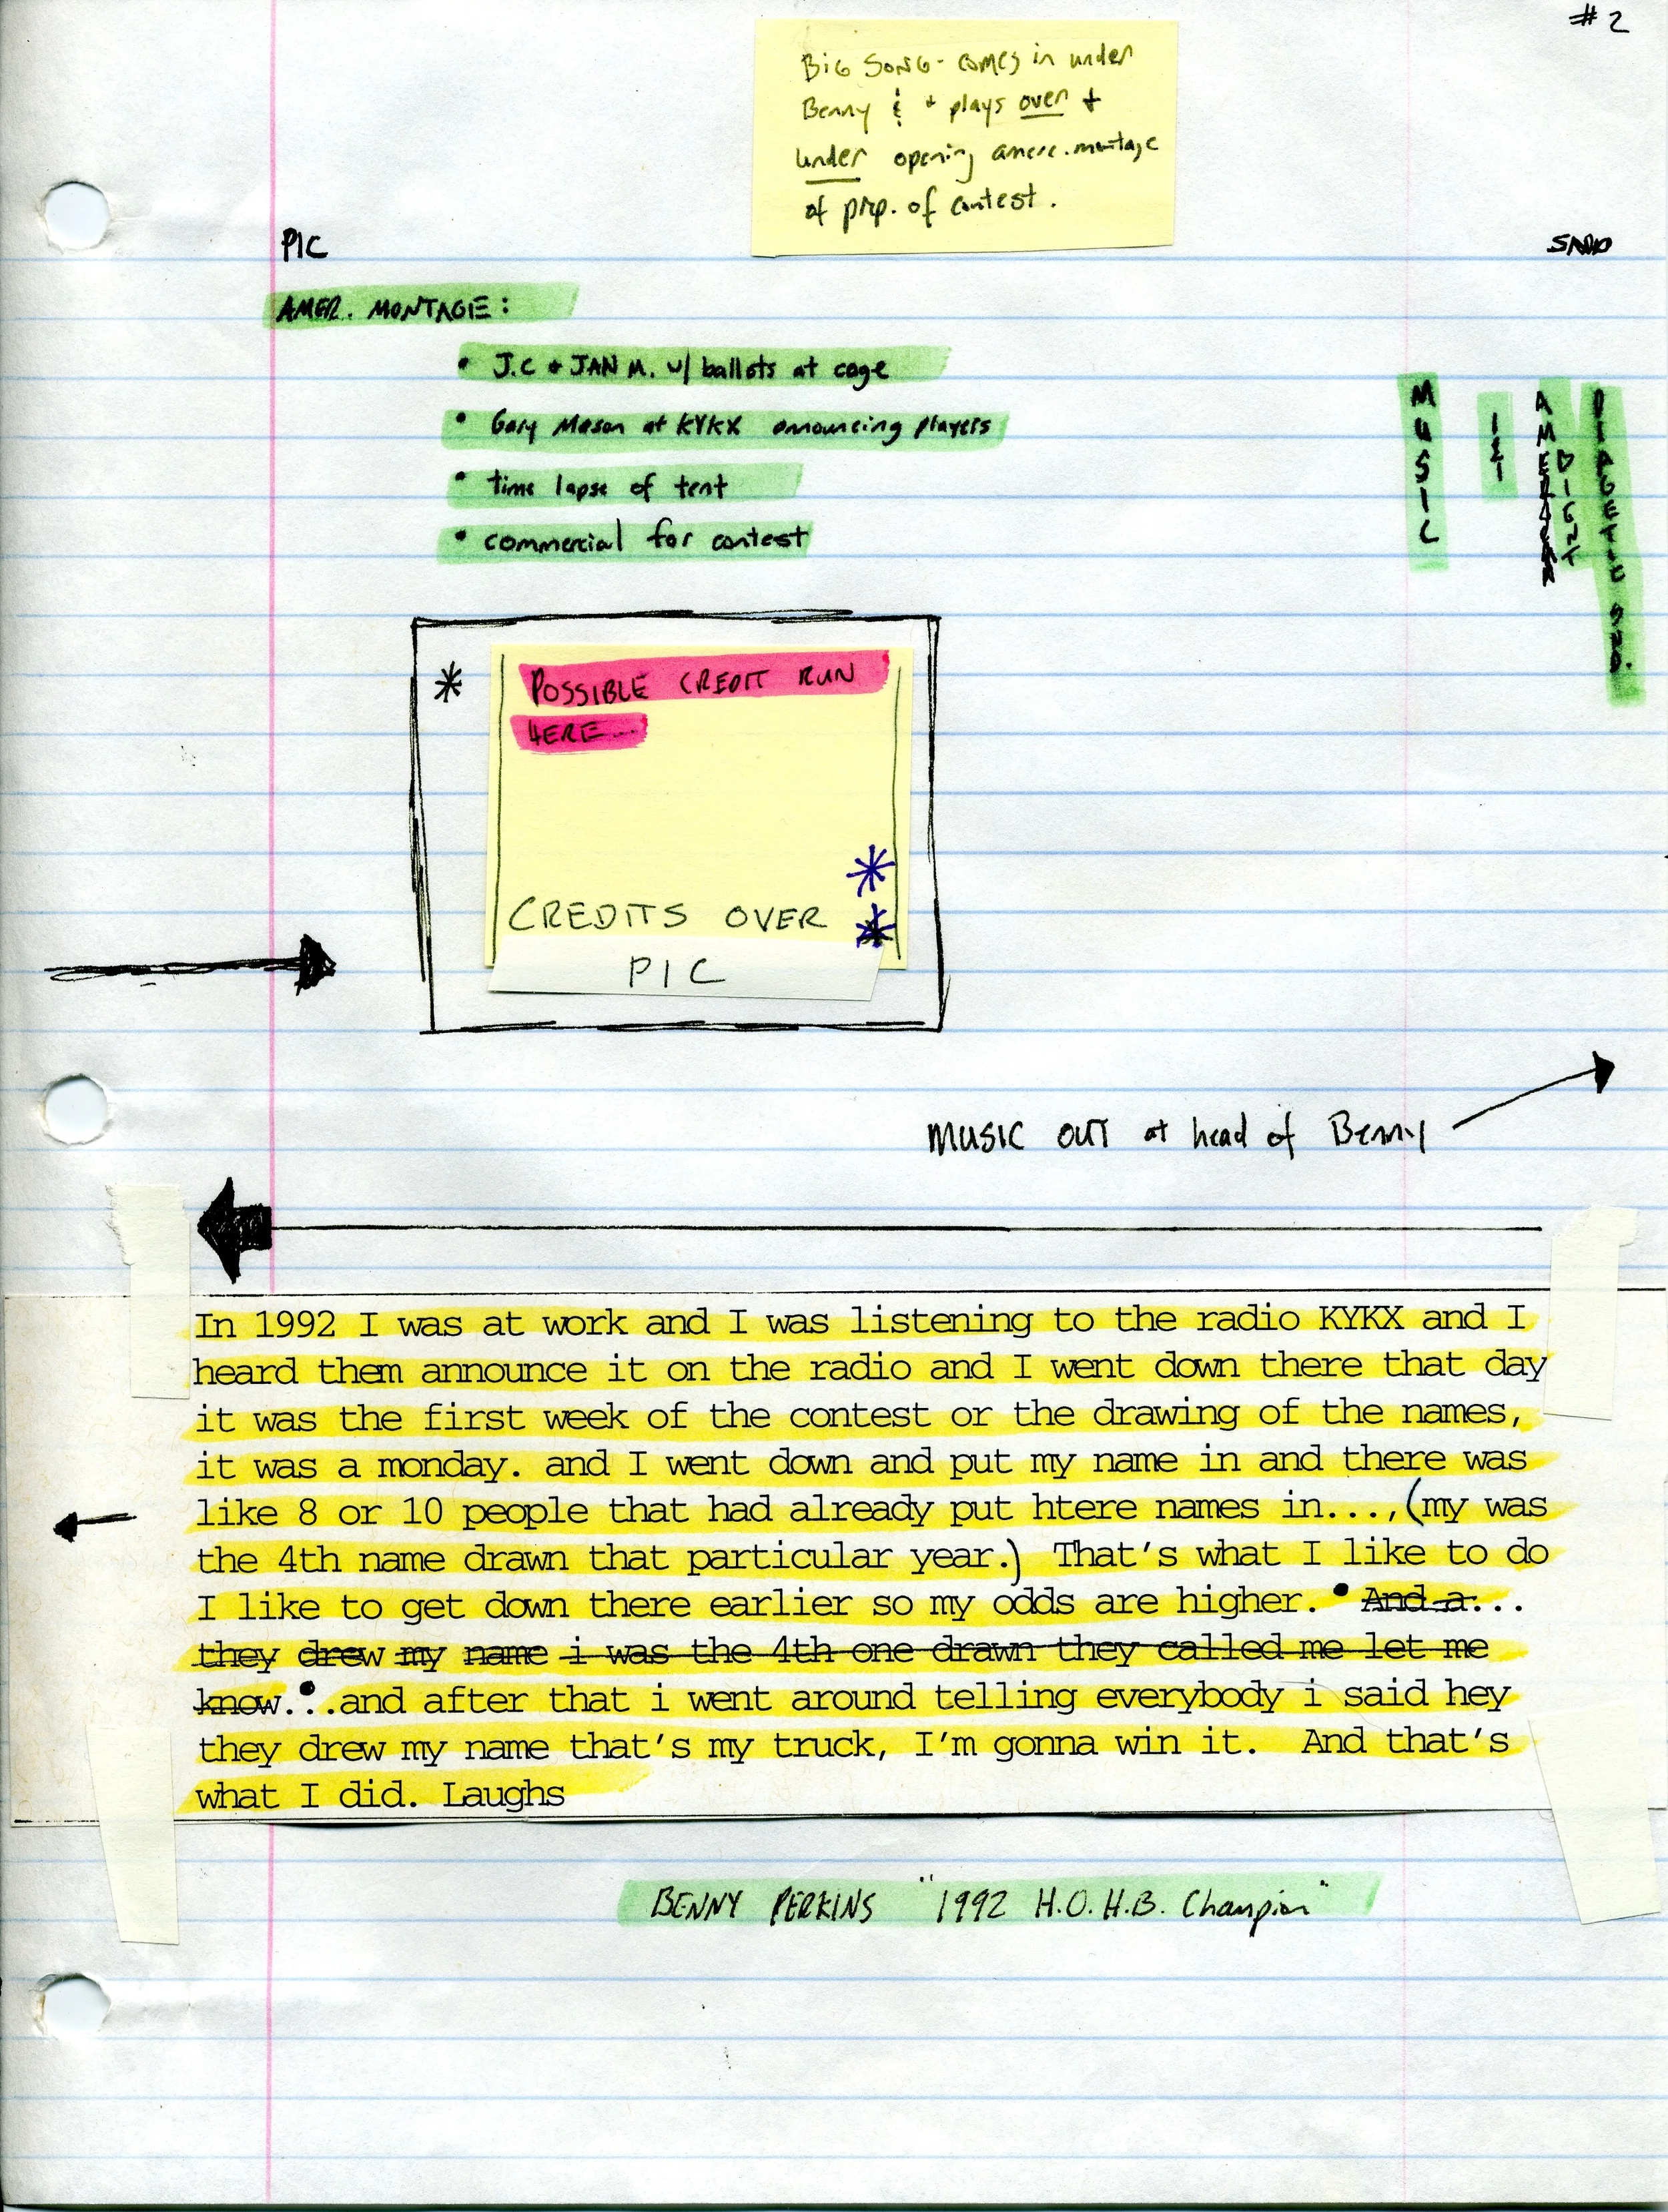 #2
BIG SONG - comes in under
Benny & + plays over +
under opening amere. montage
of prep. of contest.
PIC
SND
AMER. MONTAGE:
• J.C + JAN M. w/ ballots at cage
• Gary Mason at KYKX announcing players
• time lapse of tent
• commercial for contest
MUSIC
AMBIGNT
DIAGETIC SND.
* POSSIBLE CREDIT RUN
HERE...
CREDITS OVER
PIC
MUSIC OUT at head of Benny
In 1992 I was at work and I was listening to the radio KYKX and I
heard them announce it on the radio and I went down there that day
it was the first week of the contest or the drawing of the names,
it was a monday. and I went down and put my name in and there was
like 8 or 10 people that had already put htere names in...,(my was
the 4th name drawn that particular year.) That's what I like to do
I like to get down there earlier so my odds are higher. • And a...
they drew my name i was the 4th one drawn they called me let me
know...and after that i went around telling everybody i said hey
they drew my name that's my truck, I'm gonna win it. And that's
what I did. Laughs
BENNY PERKINS "1992 H.O.H.B. Champion"